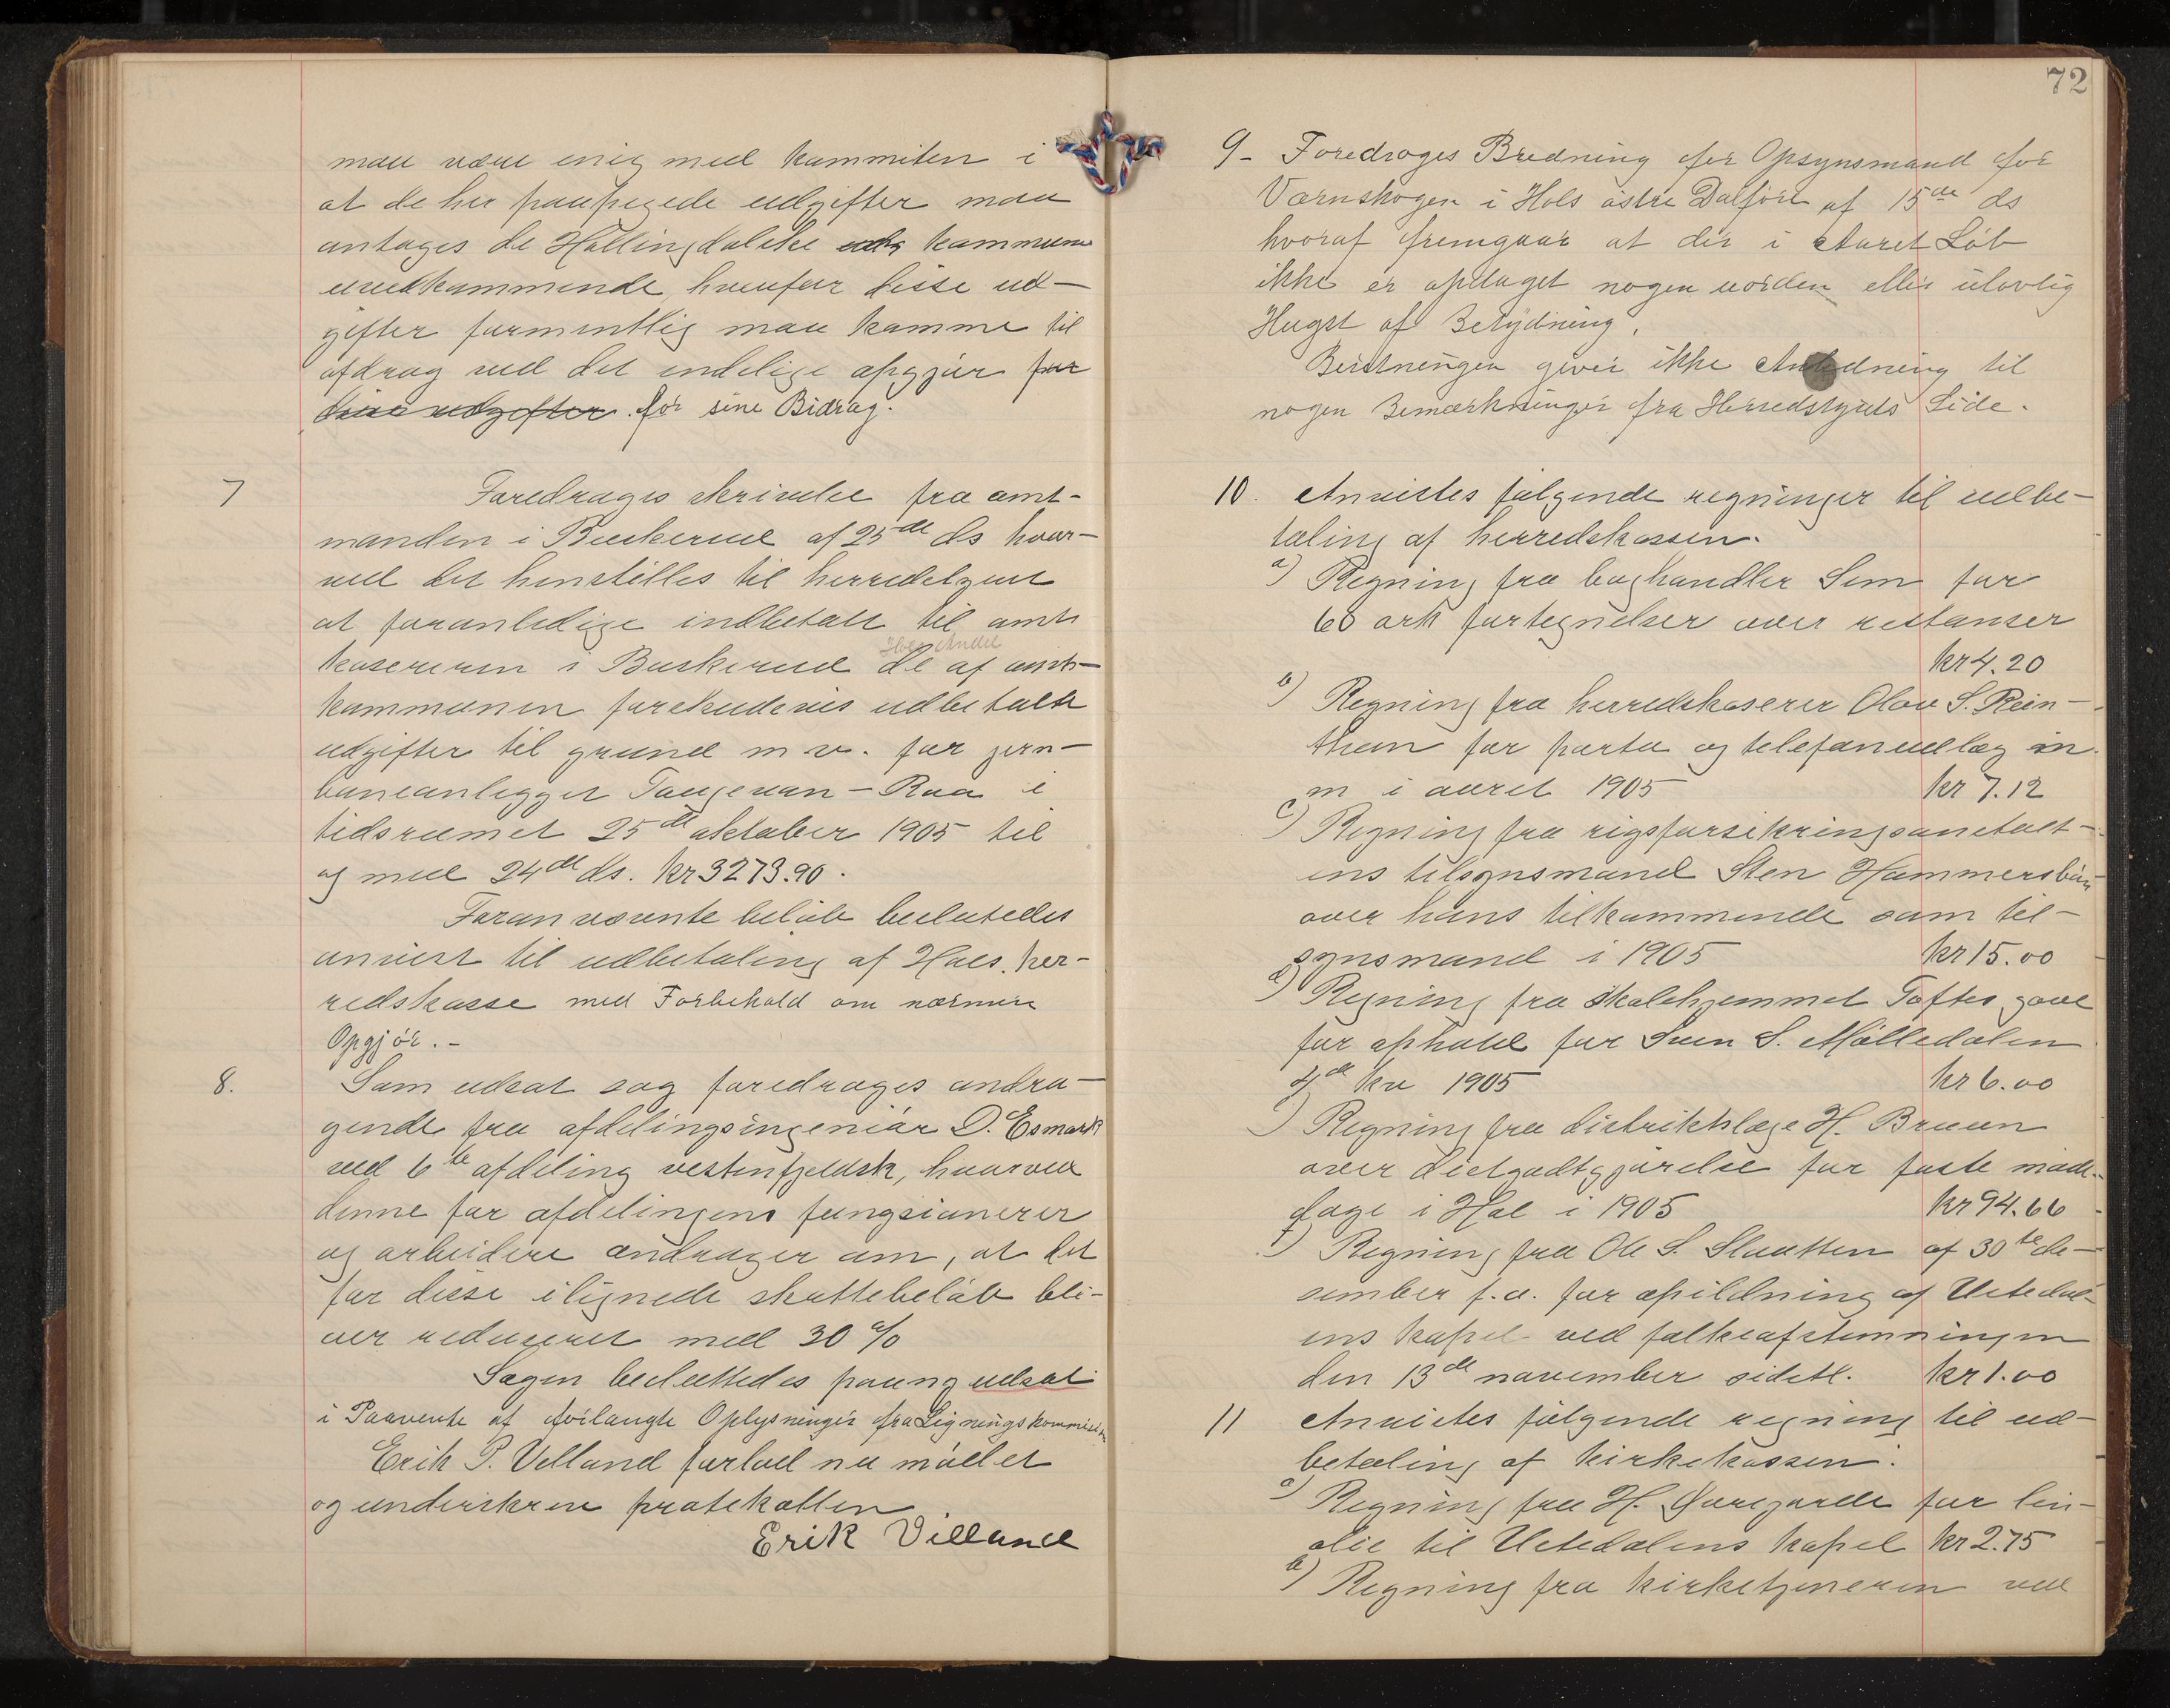 maa være enig med kommiten i
at de her paapegede udgifter maa
antages de Hallingdalske kommuner
uvedkommende, hvorfor disse ud-
gifter formentlig maa komme til
afdrag ved det endelige opgjør for
disse udgifter. for sine Bidrag.
7
Foredroges skrivelse fra amt-
manden i Buskerud af 25de ds hvor-
ved det henstilles til herredstyret
at foranledige indbetalt til amts
Hols Andel
kasereren i Buskerud de af amts-
kommunen forskudsvis udbetalte
udgifter til grund m v. for jern-
baneanlegget Taugevan - Roa i
tidsrummet 25de oktober 1905 til
og med 24de ds. kr 3273.90.
Forannævnte beløb besluttedes
anvist til udbetaling af Hols her-
redskasse med Forbehold om nærmere
Opgjör. -
8.
Som udsat sag foredroges andra-
gende fra afdelingsingeniør D. Esmark
ved 6te afdeling vestenfjeldsk, hvorved
denne for afdelingens fungsionerer
og arbeidere andrager om, at det
for disse ilignede skattebeløb bli-
ver reduceret med 30 %
Sagen besluttedes paany udsat
i Paavente af forlangte Oplysninger fra Ligningskommisi
Erik P. Villand forlod nu mødet
og underskrev protokollen
Erik Villand
72
9- Foredroges Beredning fra Opsynsmand for
Værnskogen i Hols östre Dalföre af 15de ds
hvoraf fremgaar at der i Aaret Löb
ikke er opdaget nogen uorden eller ulovlig
Hugst af Betydning.
Beretningen giver ikke Anledning til
nogen Bemærkninger fra Herredstyrets Side.
10. Anvistes følgende regninger til udbe-
taling af herredskassen.
a) Regning fra boghandler Sem for
60 ark fortegnelser over restanser
kr 4.20
b) Regning fra herredskaserer Olav S. Rein-
ton for porto og telefonudlæg m.
m i aaret 1905 kr 7.12
c) Regning fra rigsforsikringsanstalt-
ens tilsynsmand Sten Hammersbøn
over hans tilkommende som til-
synsmand i 1905 kr 15.00
d) Regning fra skolehjemmet Toftes gave
for ophold for Sven S. Mølledalen
4de kv 1905 kr 6.00
) Regning fra distriktslæge H. Bruun
over dietgodtgjørelse for faste møde-
dage i Hol i 1905 kr 94.66
f) Regning fra Ole S. Slaatten af 30te de-
sember f.a. for opildning af Ustedal-
ens kapel ved folkeafstemningen
den 13de november sidstl. kr 1.00
11 Anvistes følgende regning til ud-
betaling af kirkekassen.
a) Regning fra H. for lin-
olie til Ustedalens kapel kr 2.75
b) Regning fra kirketjeneren ved